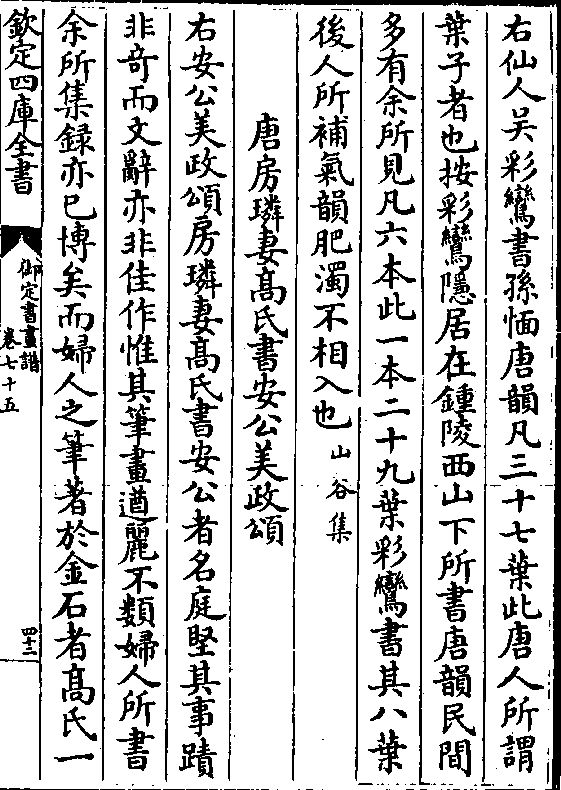 右仙人吴彩鸞書孫愐唐韻凡三十七葉此唐人所謂
葉子者也按彩鸞隱居在鍾陵西山下所書唐韻民間
多有余所見凡六本此一本二十九葉彩鸞書其八葉
後人所補氣韻肥濁不相入也山谷集
唐房璘妻髙氏書安公美政頌
右安公美政頌房璘妻髙氏書安公者名庭堅其事蹟
非竒而文辭亦非佳作惟其筆畫遒麗不類婦人所書
余所集録亦已博矣而婦人之筆著於金石者髙氏一
欽定四庫全書
御定書畫譜
卷七十五
四十二